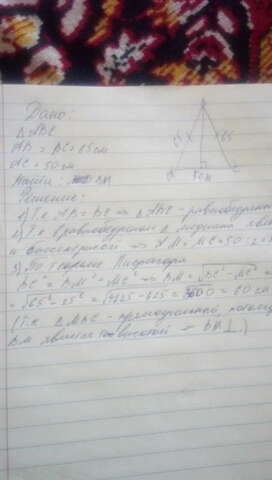 Дано:
△ABC
AB = BC = 65 см
AC = 50 см
Найти: BM
65 65
50 см
Решение:
1) Т.к AB = BC ⇒ △ABC - равнобедрен
2) Т.к в равнобедрен △ медиана явл
и биссектрисой ⇒ AM = MC = 50 : 2
3) По теореме Пифагора
BC² = BM² + MC² ⇒ BM = √BC² - MC² =
= √65² - 25² = √4225 - 625 = 3600 = 60 см
(Т.к △ MBC - прямоугольный,
BM является высотой ⇒ BM ⊥.)